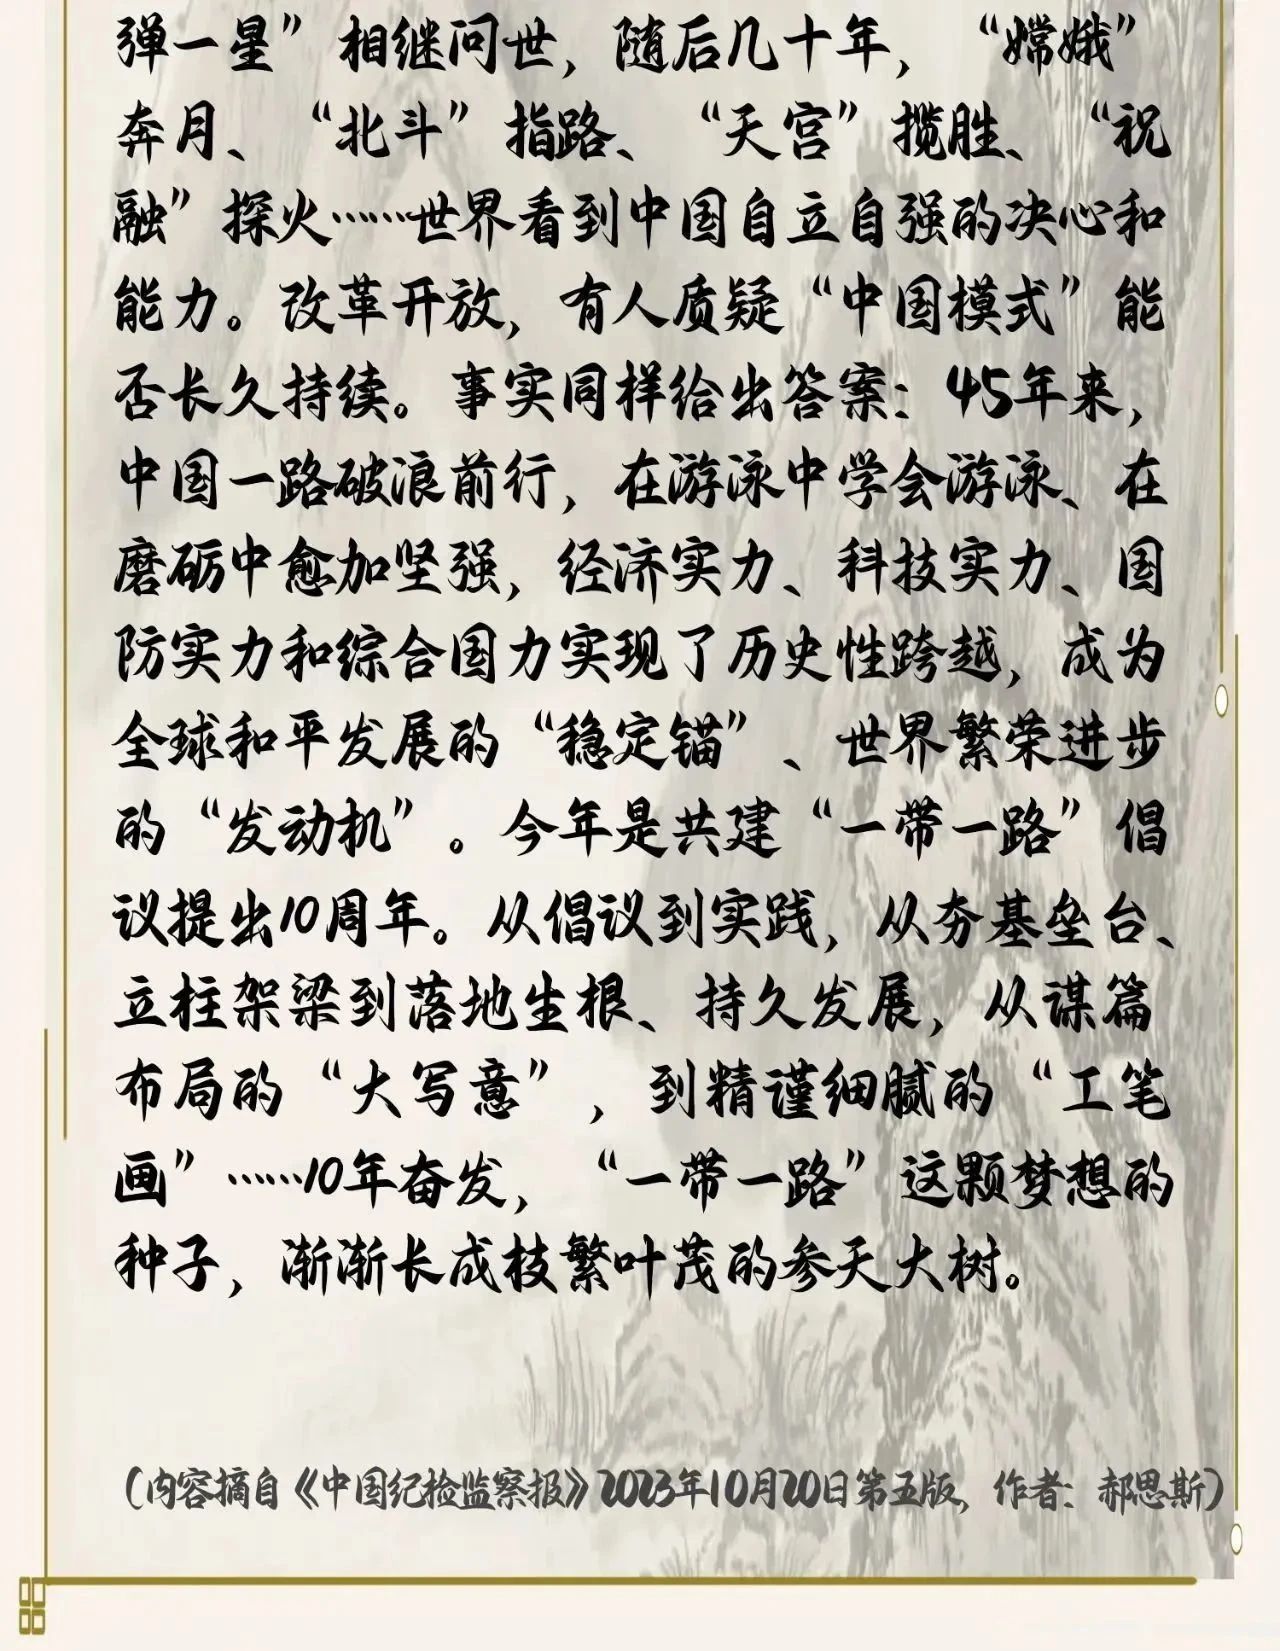 弹一星”相继问世，随后几十年，“嫦娥”
奔月、“北斗”指路、“天宫”揽胜、“祝
融”探火……世界看到中国自立自强的决心和
能力。改革开放，有人质疑“中国模式”能
否长久持续。事实同样给出答案：45年来，
中国一路破浪前行，在游泳中学会游泳、在
磨砺中愈加坚强，经济实力、科技实力、国
防实力和综合国力实现了历史性跨越，成为
全球和平发展的“稳定锚”、世界繁荣进步
的“发动机”。今年是共建“一带一路”倡
议提出10周年。从倡议到实践，从夯基垒台、
立柱架梁到落地生根、持久发展，从谋篇
布局的“大写意”，到精谨细腻的“工笔
画”……10年奋发，“一带一路”这颗梦想的
种子，渐渐长成枝繁叶茂的参天大树。
（内容摘自《中国纪检监察报》2023年10月20日第五版，作者：郝思斯）